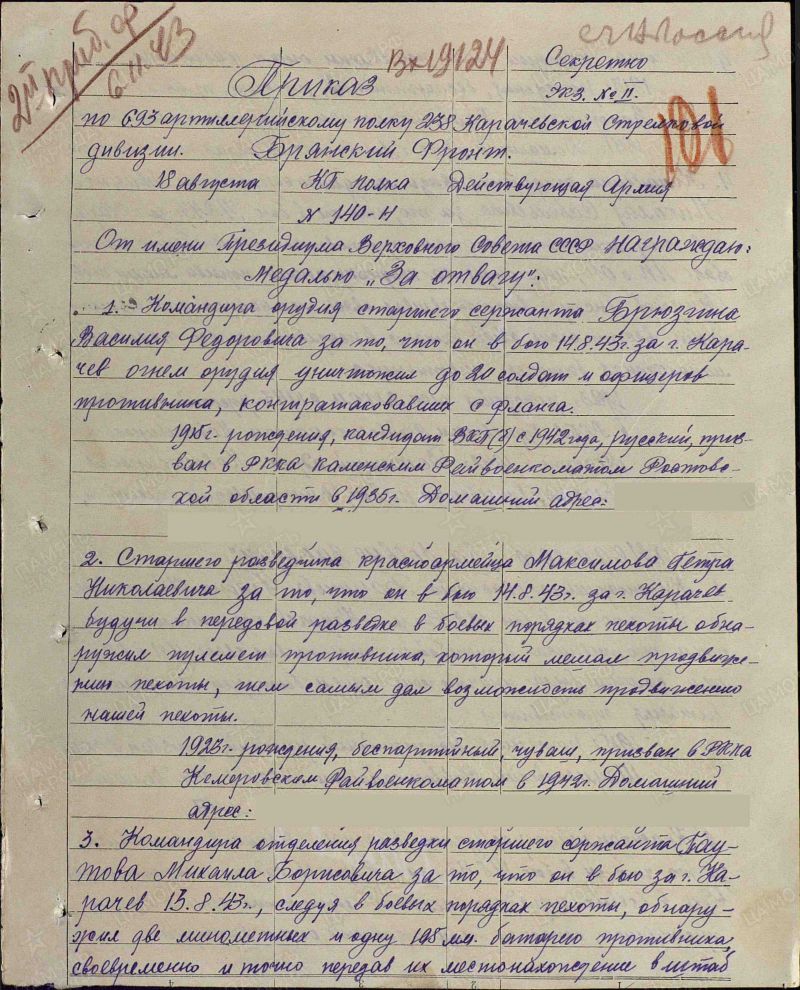 2й приб. ф
6.11.43
Вх 19124
Секретно
Приказ
Экз. № II.
101
по 693 артиллерийскому полку 238 Карачевской Стрелковой
дивизии. Брянский Фронт.
18 августа КП полка Действующая Армия
N 140-Н
От имени Президиума Верховного Совета СССР награждаю:
Медалью „За отвагу":
1. Командира орудия старшего сержанта Брюзгина
Василия Федоровича за то, что он в бою 14.8.43г. за г. Кара-
чев огнем орудия уничтожил до 20 солдат и офицеров
противника, контратаковавших с фланга.
1915г. рождения, кандидат ВКП(б) с 1942 года, русский, приз-
ван в РККА Каменским Райвоенкоматом Ростовс-
кой области в 1935г. Домашний адрес:
2. Старшего разведчика красноармейца Максимова Петра
Николаевича за то, что он в бою 14.8.43г. за г. Карачев
будучи в передовой разведке в боевых порядках пехоты обна-
ружил пулемет противника, который мешал продвиже-
нию пехоты, тем самым дал возможность продвижению
нашей пехоты.
1923г. рождения, беспартийный, чуваш, призван в РККА
Кемеровским Райвоенкоматом в 1942г. Домашний
адрес:
3. Командира отделения разведки старшего сержанта Пау-
това Михаила Борисовича за то, что он в бою за г. Ка-
рачев 15.8.43г., следуя в боевых порядках пехоты, обнару-
жил две минометных и одну 105 мм. батарею противника,
своевременно и точно передав их местонахождение в штаб